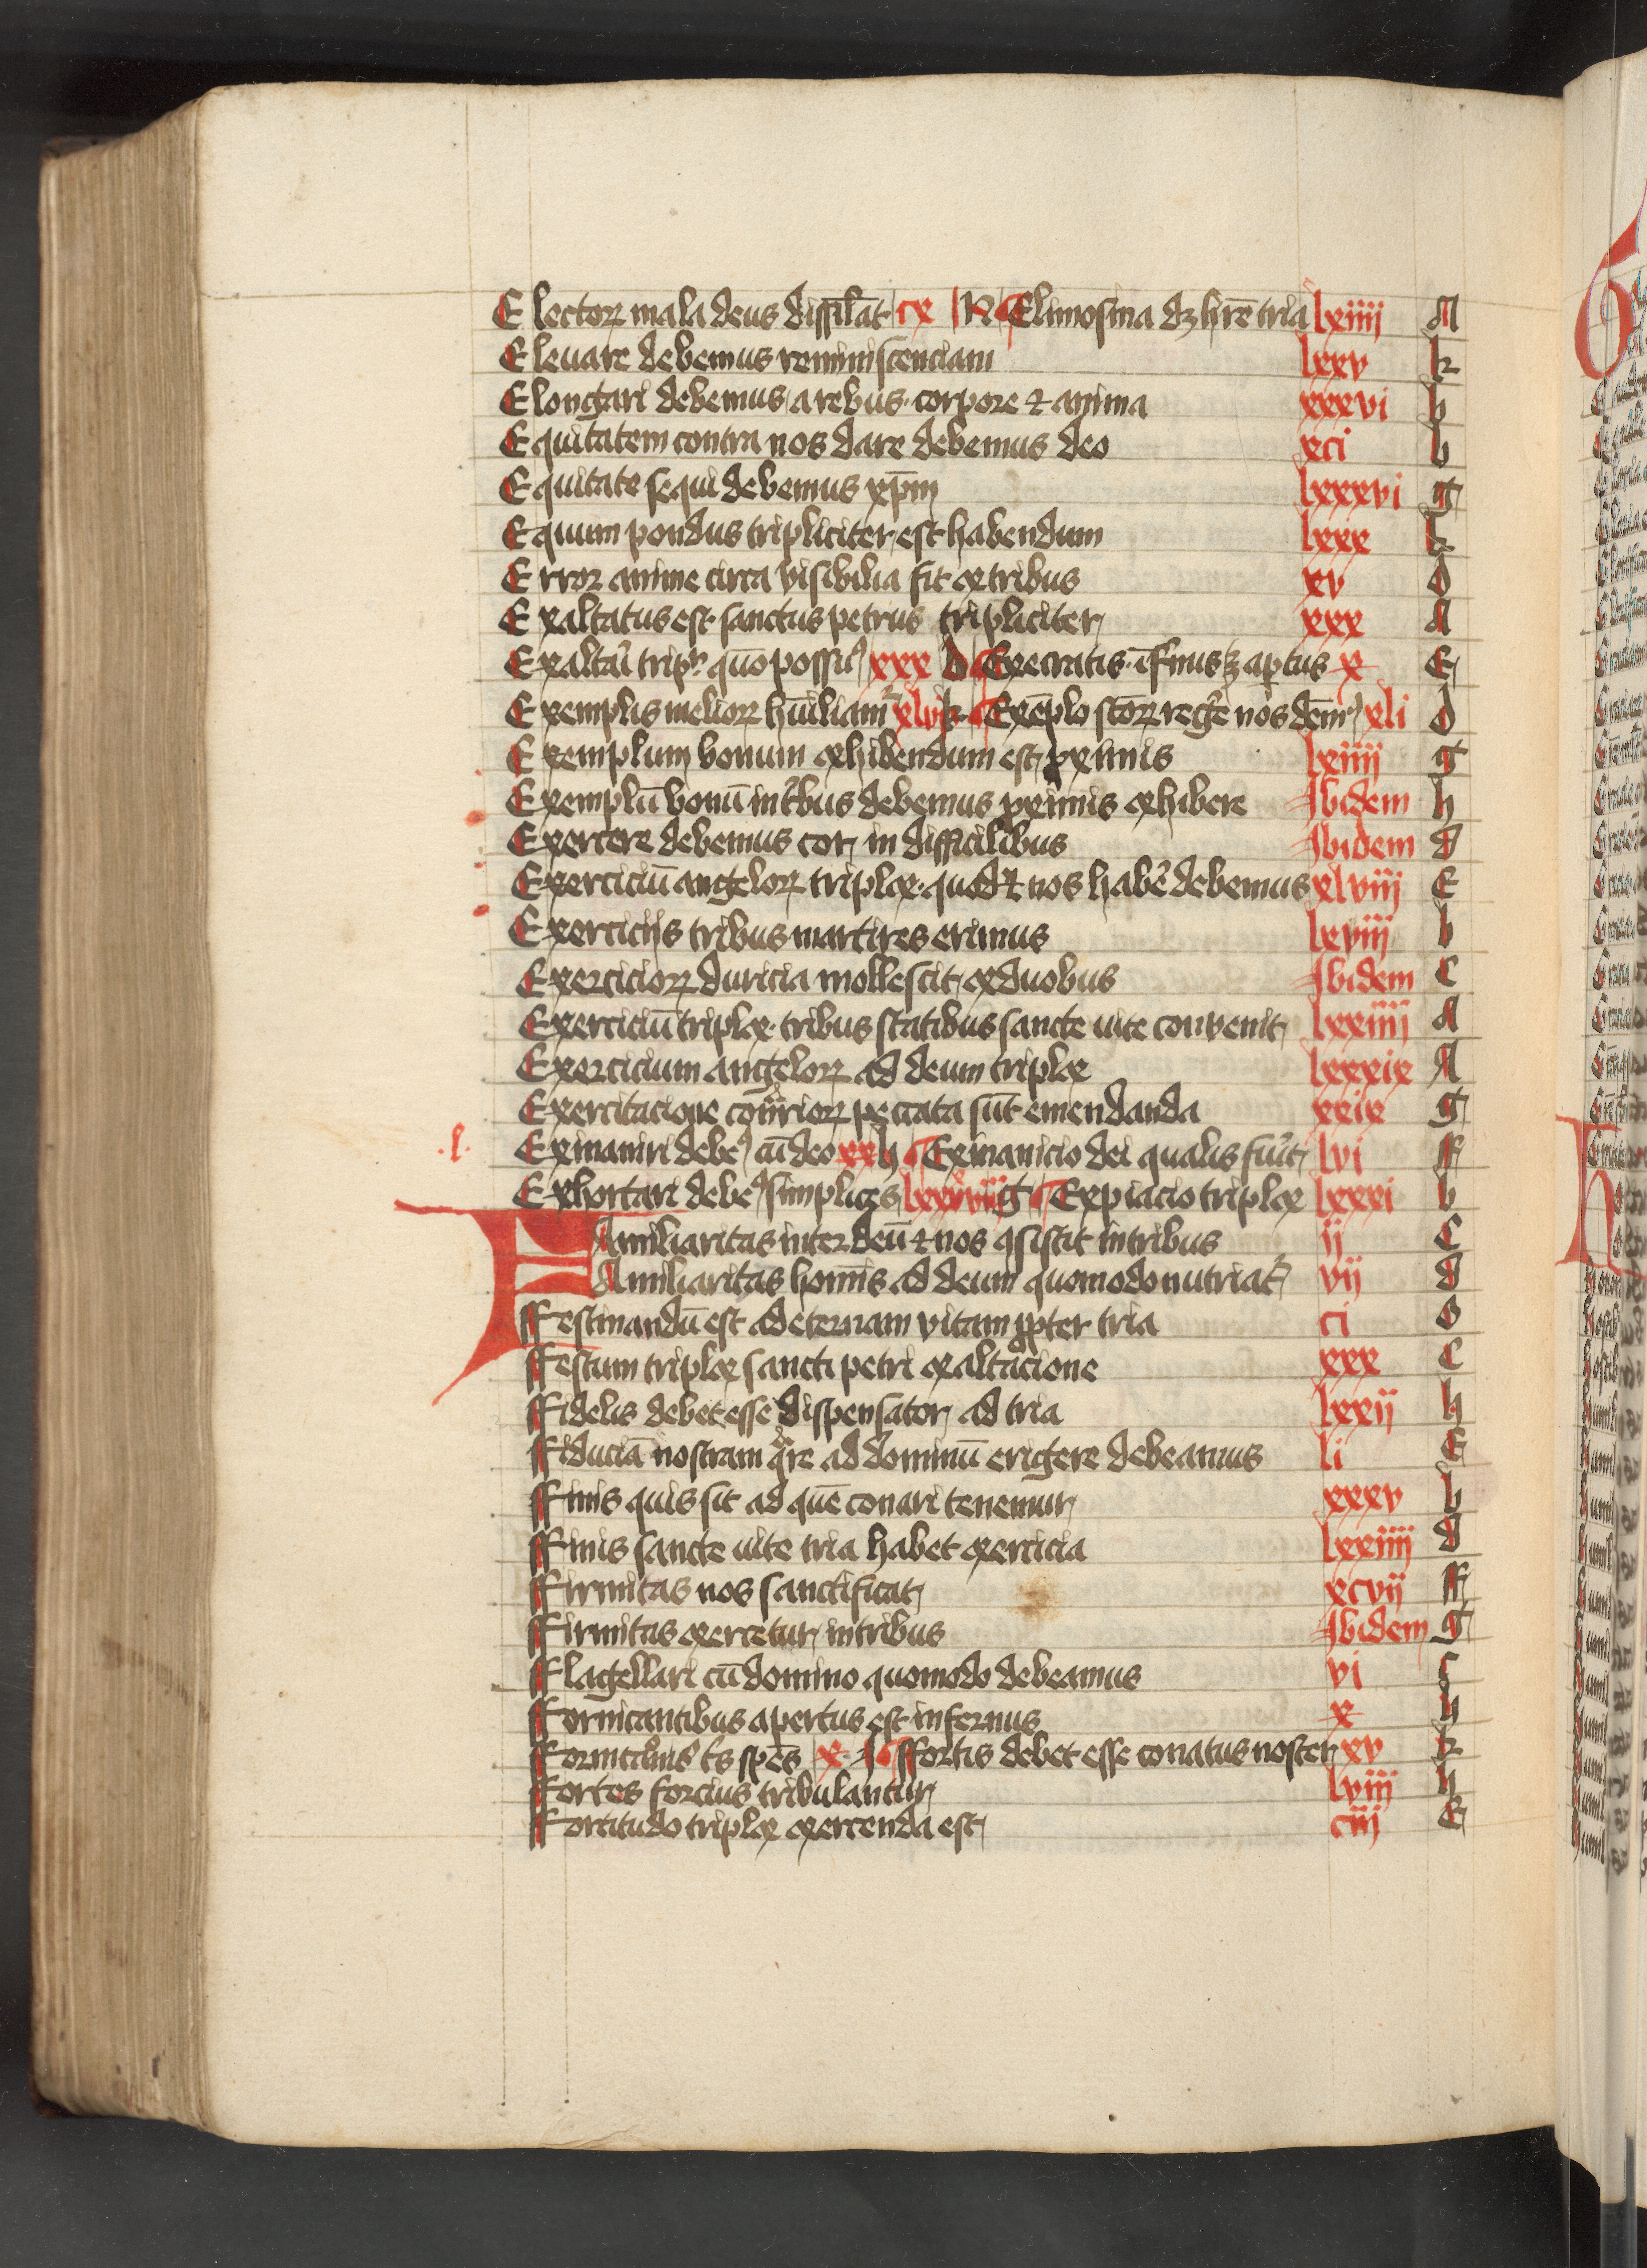 Electoꝝ mala deus dissiͥlat cx K Elimosina dꝫ hr̄e tria lxiiii A
Eleuare debemus reminiscenciam lxxv k
Elongari debemus a rebus corpore ⁊ anima xxxvi h
Equitatem contra nos dare debemus deo xci b
Equitate sequi debemus xp̄m lxxxvi g
Equum pondus tripliciter est habendum lxxx
Error anime circa visibilia fit ex tribus xv d
Exaltatus est sanctus petrus tripliciter xxx A
Exaltari tripͬ quō possuꝰ xxx d Execratis īfernus ꝫ aptus x E
Exemplis melioꝝ hūiliamr xlvi k Exēplo sc̄oꝝ regere nos dēmꝰ xli d
Exemplum bonum exhibendum est ꝓximis lxiiii g
Exemplū bonū in tͥbus debemus ꝓximis exhibere Ibidem h
Exercere debemus cor in difficilibus Ibidem d
Exerciciū angeloꝝ triplex quod ⁊ nos habē debemus xlviii E
Exerciciis tribus martires erimus lxviii b
Exercicioꝝ duricia mollescit ex duobus Ibidem C
Exerciciū triplex tribus statibus sancte uite conuenit lxxiiii A
Exercicium angeloꝝ ad deum triplex lxxxix A
Exercitacione cont̾rioꝝ peccata sūt emendanda xxix g
.l. Exinaniri debeꝰ cū deo xx h Exinanicio dei qualis fuit lvi F
Exhortari debeꝰ simplices lxxxviii g Expiacio triplex lxxxi b
Familiaritas inter deū ⁊ nos ꝯsistit in tribus ii C
Familiaritas homīs ad deum quomodo nutriat̾ vii d
Ffestinandū est ad eternam vitam ꝓpter tria ci d
Ffestum triplex sancti petri exaltacione xxx C
Ffidelis debet esse dispensator ad tria lxxii h
Ffiduciā nostram qͣre ad dominū erigere debeamus li E
Ffinis quis sit ad quē conari tenemur xxxv b
Ffinis sancte uite tria habet exercicia lxxiiii d
Ffirmitas nos sanctificat xcvii F
Ffirmitas exercetur in tribus Ibidem g
Fflagellari cū domino quomodo debeamus vi
Ffornicantibus apertus est infernus x h
Ffornicͣminis t̄s sp̄es x Ffortis debet esse conatus noster xv k
Ffortes forcius tribulantur lviii h
Ffortitudo triplex exercenda est ciii E